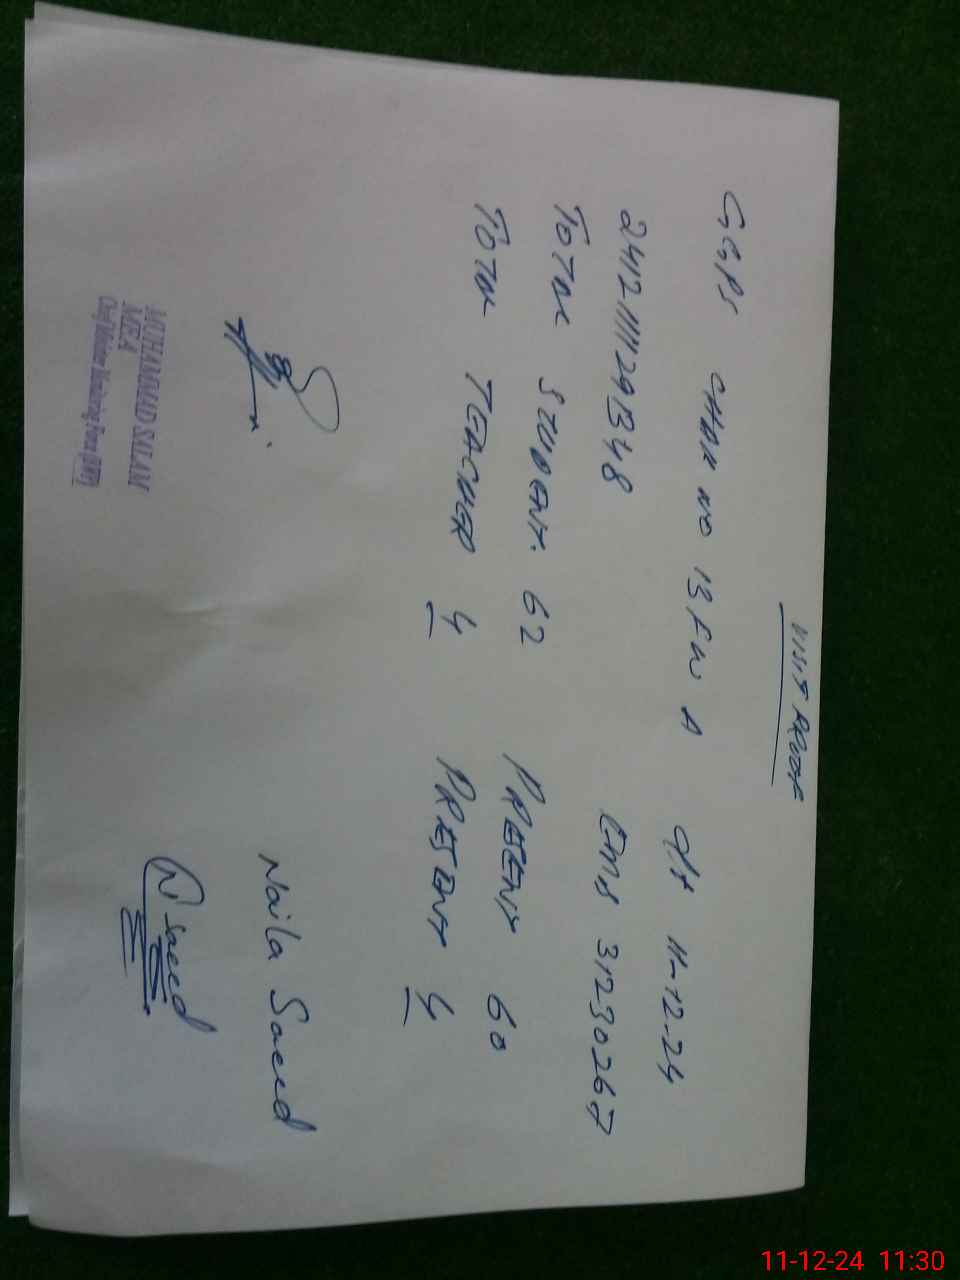 VISIT PROOF
GGPS CHAK NO 13 FW A d/t 11-12-24
2412111129348 EMIS 31230267
TOTAL STUDENT. 62 PRESENT 60
TOTAL TEACHER 4 PRESENT 4
Naila Saeed
N. Saeed
MUHAMMAD SALAM
MEA
Chief Minister Monitoring Force
11-12-24 11:30